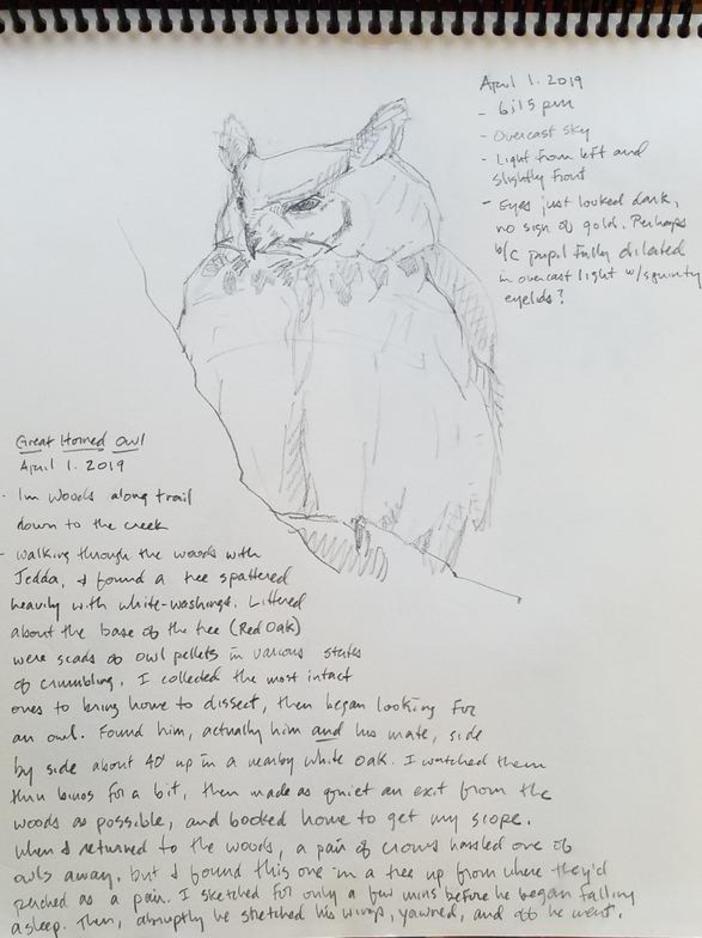 April 1. 2019
- 6:15 pm
- Overcast sky
- Light from left and
slightly front
- Eyes just looked dark,
no sign of gold. Perhaps
b/c pupil fully dilated
in overcast light w/squinty
eyelids?
Great Horned Owl
April 1. 2019
- In woods along trail
down to the creek
- walking through the woods with
Jedda, I found a tree spattered
heavily with white-washings. Littered
about the base of the tree (Red Oak)
were scads of owl pellets in various states
of crumbling. I collected the most intact
ones to bring home to dissect, then began looking for
an owl. Found him, actually him and his mate, side
by side about 40' up in a nearby white oak. I watched them
thru binos for a bit, then made as quiet an exit from the
woods as possible, and booked home to get my scope.
When I returned to the woods, a pair of crows harried one of
owls away, but I found this one in a tree up from where they'd
perched as a pair. I sketched for only a few mins before he began falling
asleep. Then, abruptly he stretched his wings, yawned, and off he went.